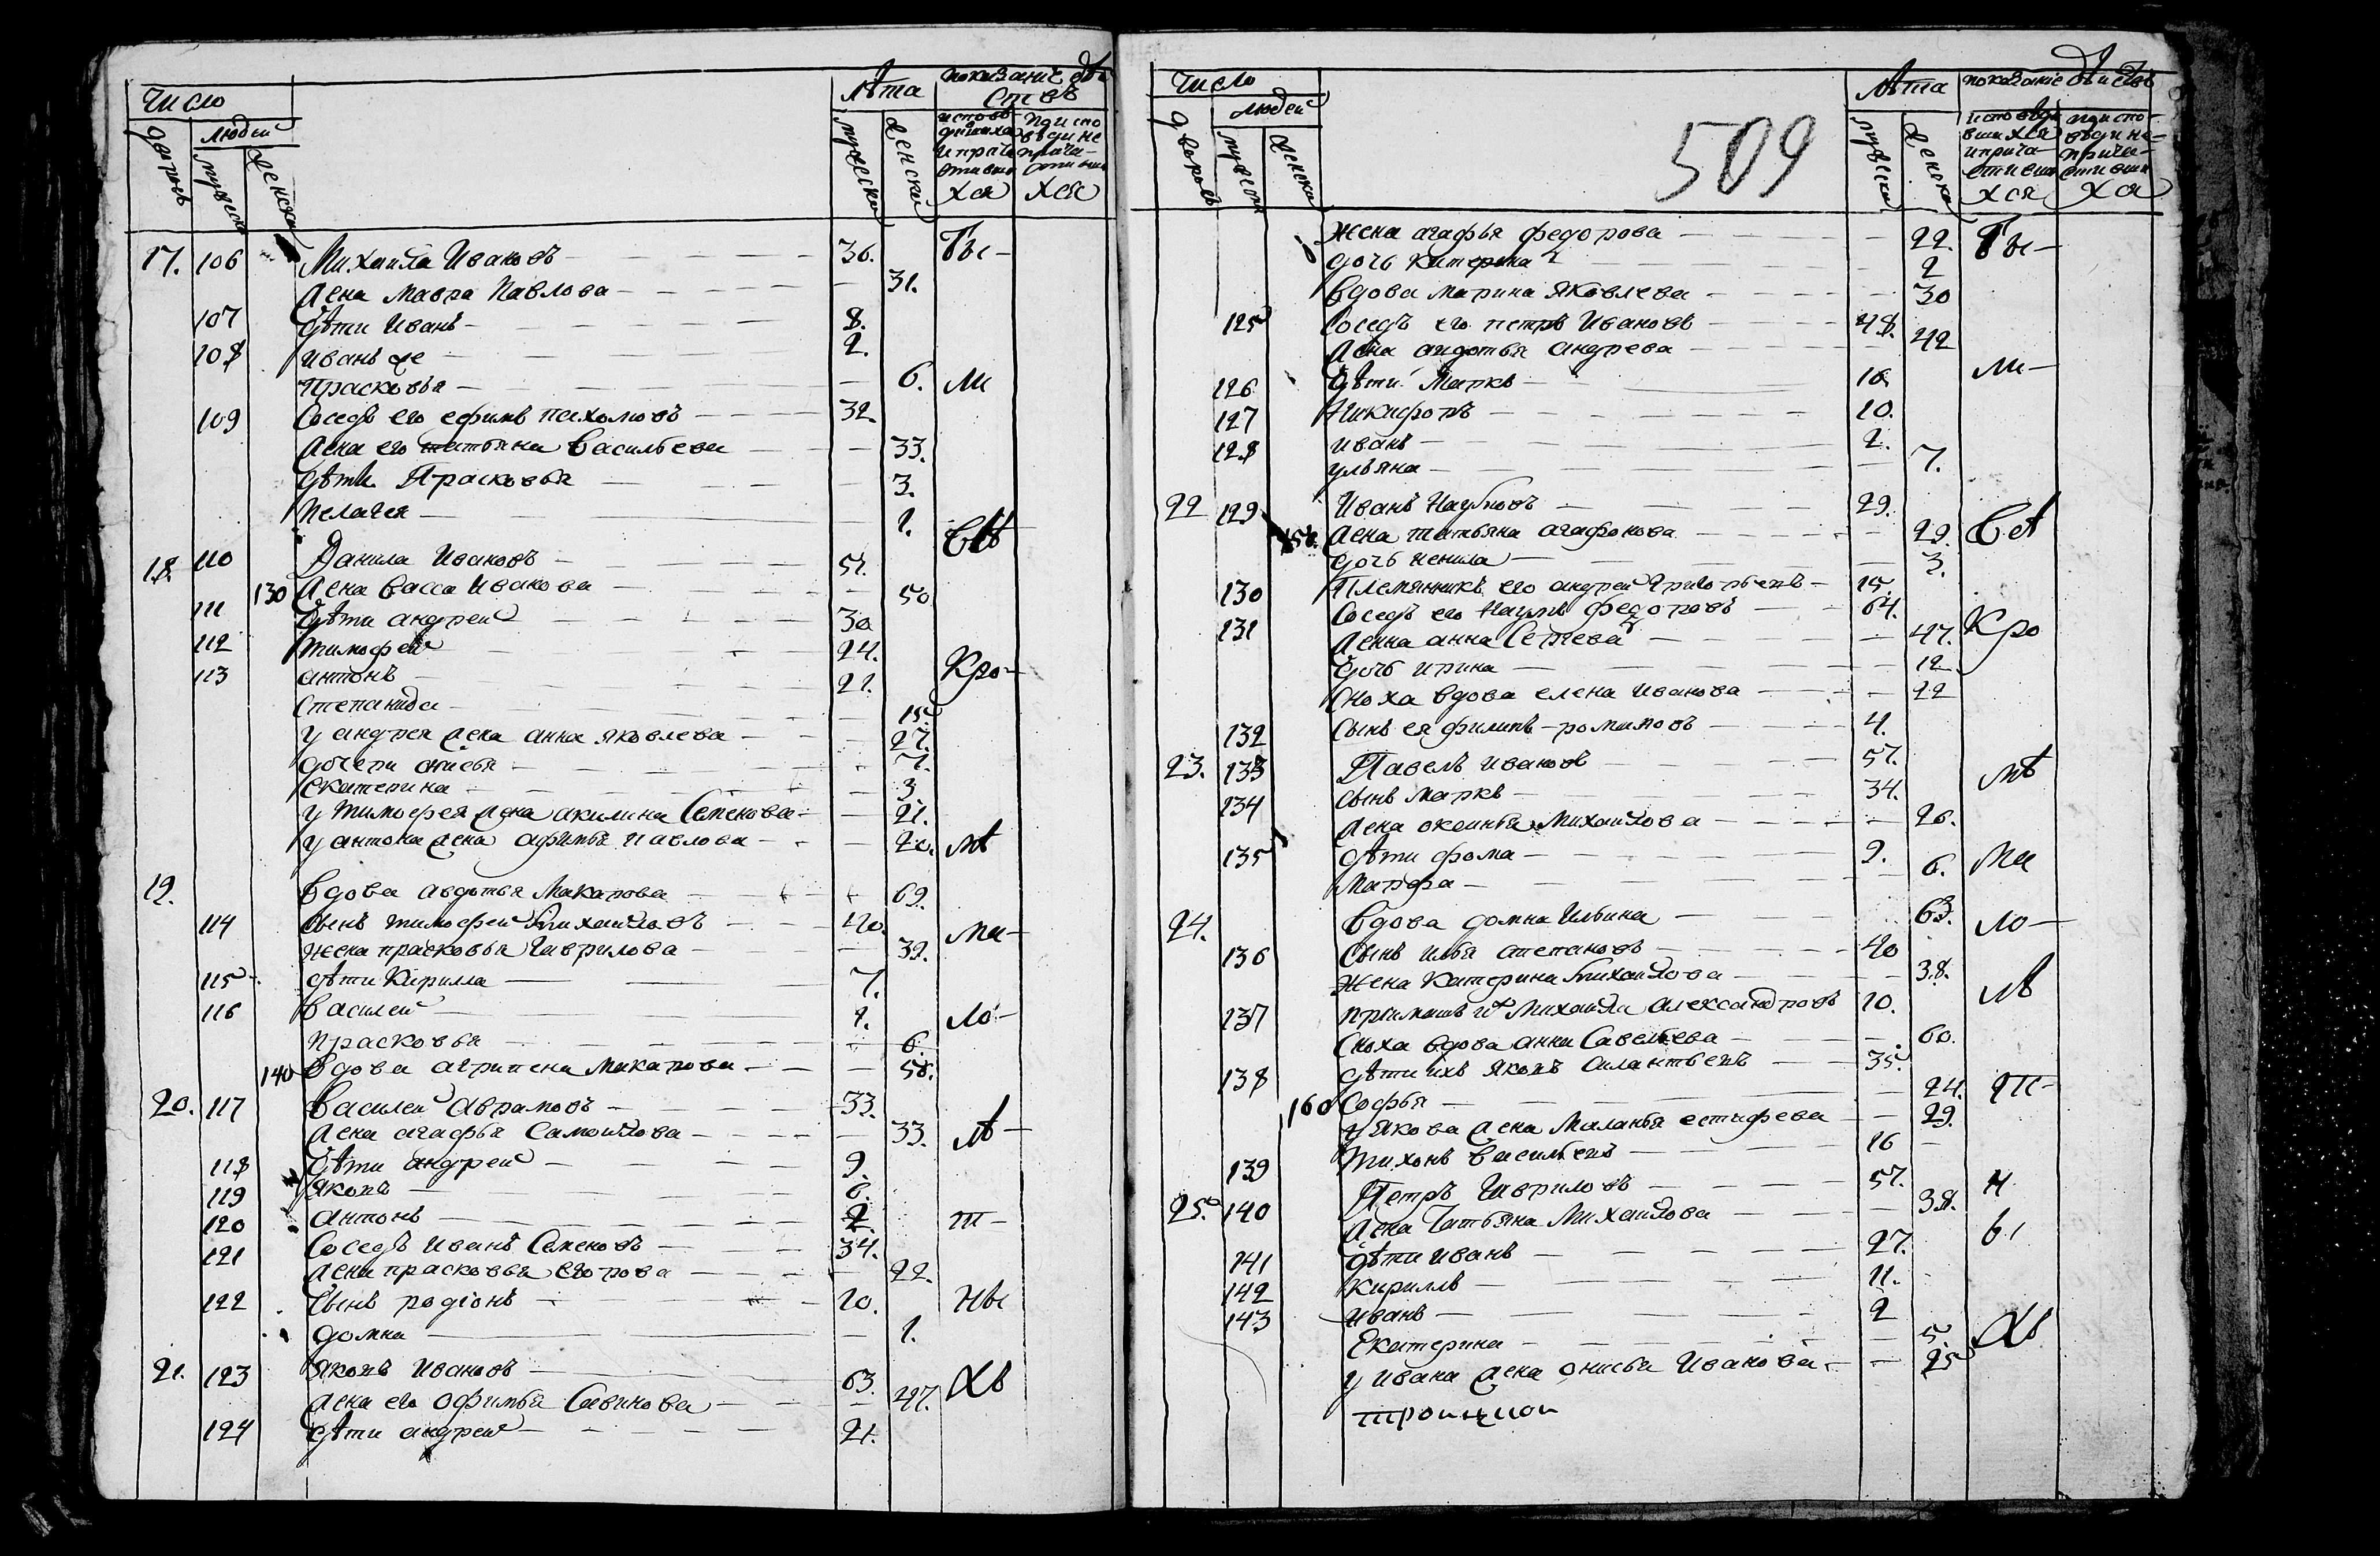 Число
Лѣта
показание дѣй
ствъ
дворовъ
людей
мужеска
женска
мужеска
женска
исповѣ
дшихся
и прича
стивши
хся
при испо
вѣди не
прича-
стивши
хся
17. 106 Михаила Ивановъ 36. Бы-
жена мавра Павлова 31.
107 дѣти Иванъ 8.
108 иванъ же 2.
Прасковья 6. ли
109 Соседъ его ефимъ пахомовъ 32.
жена его татьяна Васильева 33.
дѣти Прасковья 3.
Пелагея 1.
18. 110 Данила Ивановъ 51. Всѣ
130 жена васса Иванова 50
111 дѣти андрей 30
112 тимофей 24.
113 антонъ 21. Кро-
Степанида 15
у андрея жена анна яковлева 27.
дочери 7.
Екатерина 3
у тимофея жена акилина Семенова 21.
у антона жена афимья павлова 20. мѣ
19. вдова авдотья Макарова 69.
114 сынъ тимофей михайловъ 40. ма-
жена прасковья Гаврилова 39.
115 дѣти Кирилла 7.
116 василей 1. ло-
прасковья 6.
140 вдова агрипена макарова 58.
20. 117 Василей аврамовъ 33.
жена агафья Самойлова 33. лѣ-
118 дѣти андрей 9.
119 яковъ 6.
120 антонъ 2. т-
121 Соседъ Иванъ Семеновъ 34.
жена прасковья егорова 22.
122 Сынъ родіонъ 10. ны
домна 1.
21. 123 яковъ Ивановъ 63.
жена его Офимья Савинова 47. хъ
124 дѣти андрей 21.
509
Число
Лѣта
показание дѣйствъ
дворовъ
людей
мужеска
женска
мужеска
женска
исповѣда
вшихся
и прича-
стивши
хся
при испо-
вѣди не-
прича-
стивши
хся
жена агафья федорова 22. Бы-
дочь катерина 2
вдова марина яковлева 30
125 Соседъ его петръ Ивановъ 48.
жена авдотья андрева 42
126 дѣти Маркъ 18 ли-
127 Никифоръ 10.
128 иванъ 2.
ульяна 7.
22 129 Иванъ Наумовъ 29.
150 жена татьяна агафонова 29. Всѣ
дочь ненила 3.
130 Племянникъ его андрей григорьевъ 15.
131 Соседъ его Наумъ федоровъ 64.
женна анна Сергева 47. Кро
дочь ирина 12
сноха вдова елена Иванова 22
132 сынъ ея филипъ 4.
23. 133 Павелъ ивановъ 57. мѣ
134 сынъ маркъ 34.
жена оксинья Михайлова 26.
135 дѣти фома 9.
Марфа 6. ма
24. вдова домна Ильина 63. ло-
136 Сынъ илья степановъ 40
жена Катерина михайлова 38.
137 Михаила александровъ 10. лѣ
сноха вдова анна Савельева 60.
138 дѣти ихъ яковъ силантьевъ 35
160 Софья 24. т-
у якова жена Маланья естифева 29.
139 тихонъ васильевъ 16
25. 140 Петръ Гавриловъ 57. н
жена Татьяна Михайлова 38.
141 дѣти иванъ 27. ы
142 кириллъ 11.
143 иванъ 2
Екатерина 5. хъ
у ивана жена онисья Иванова 25
троицкой